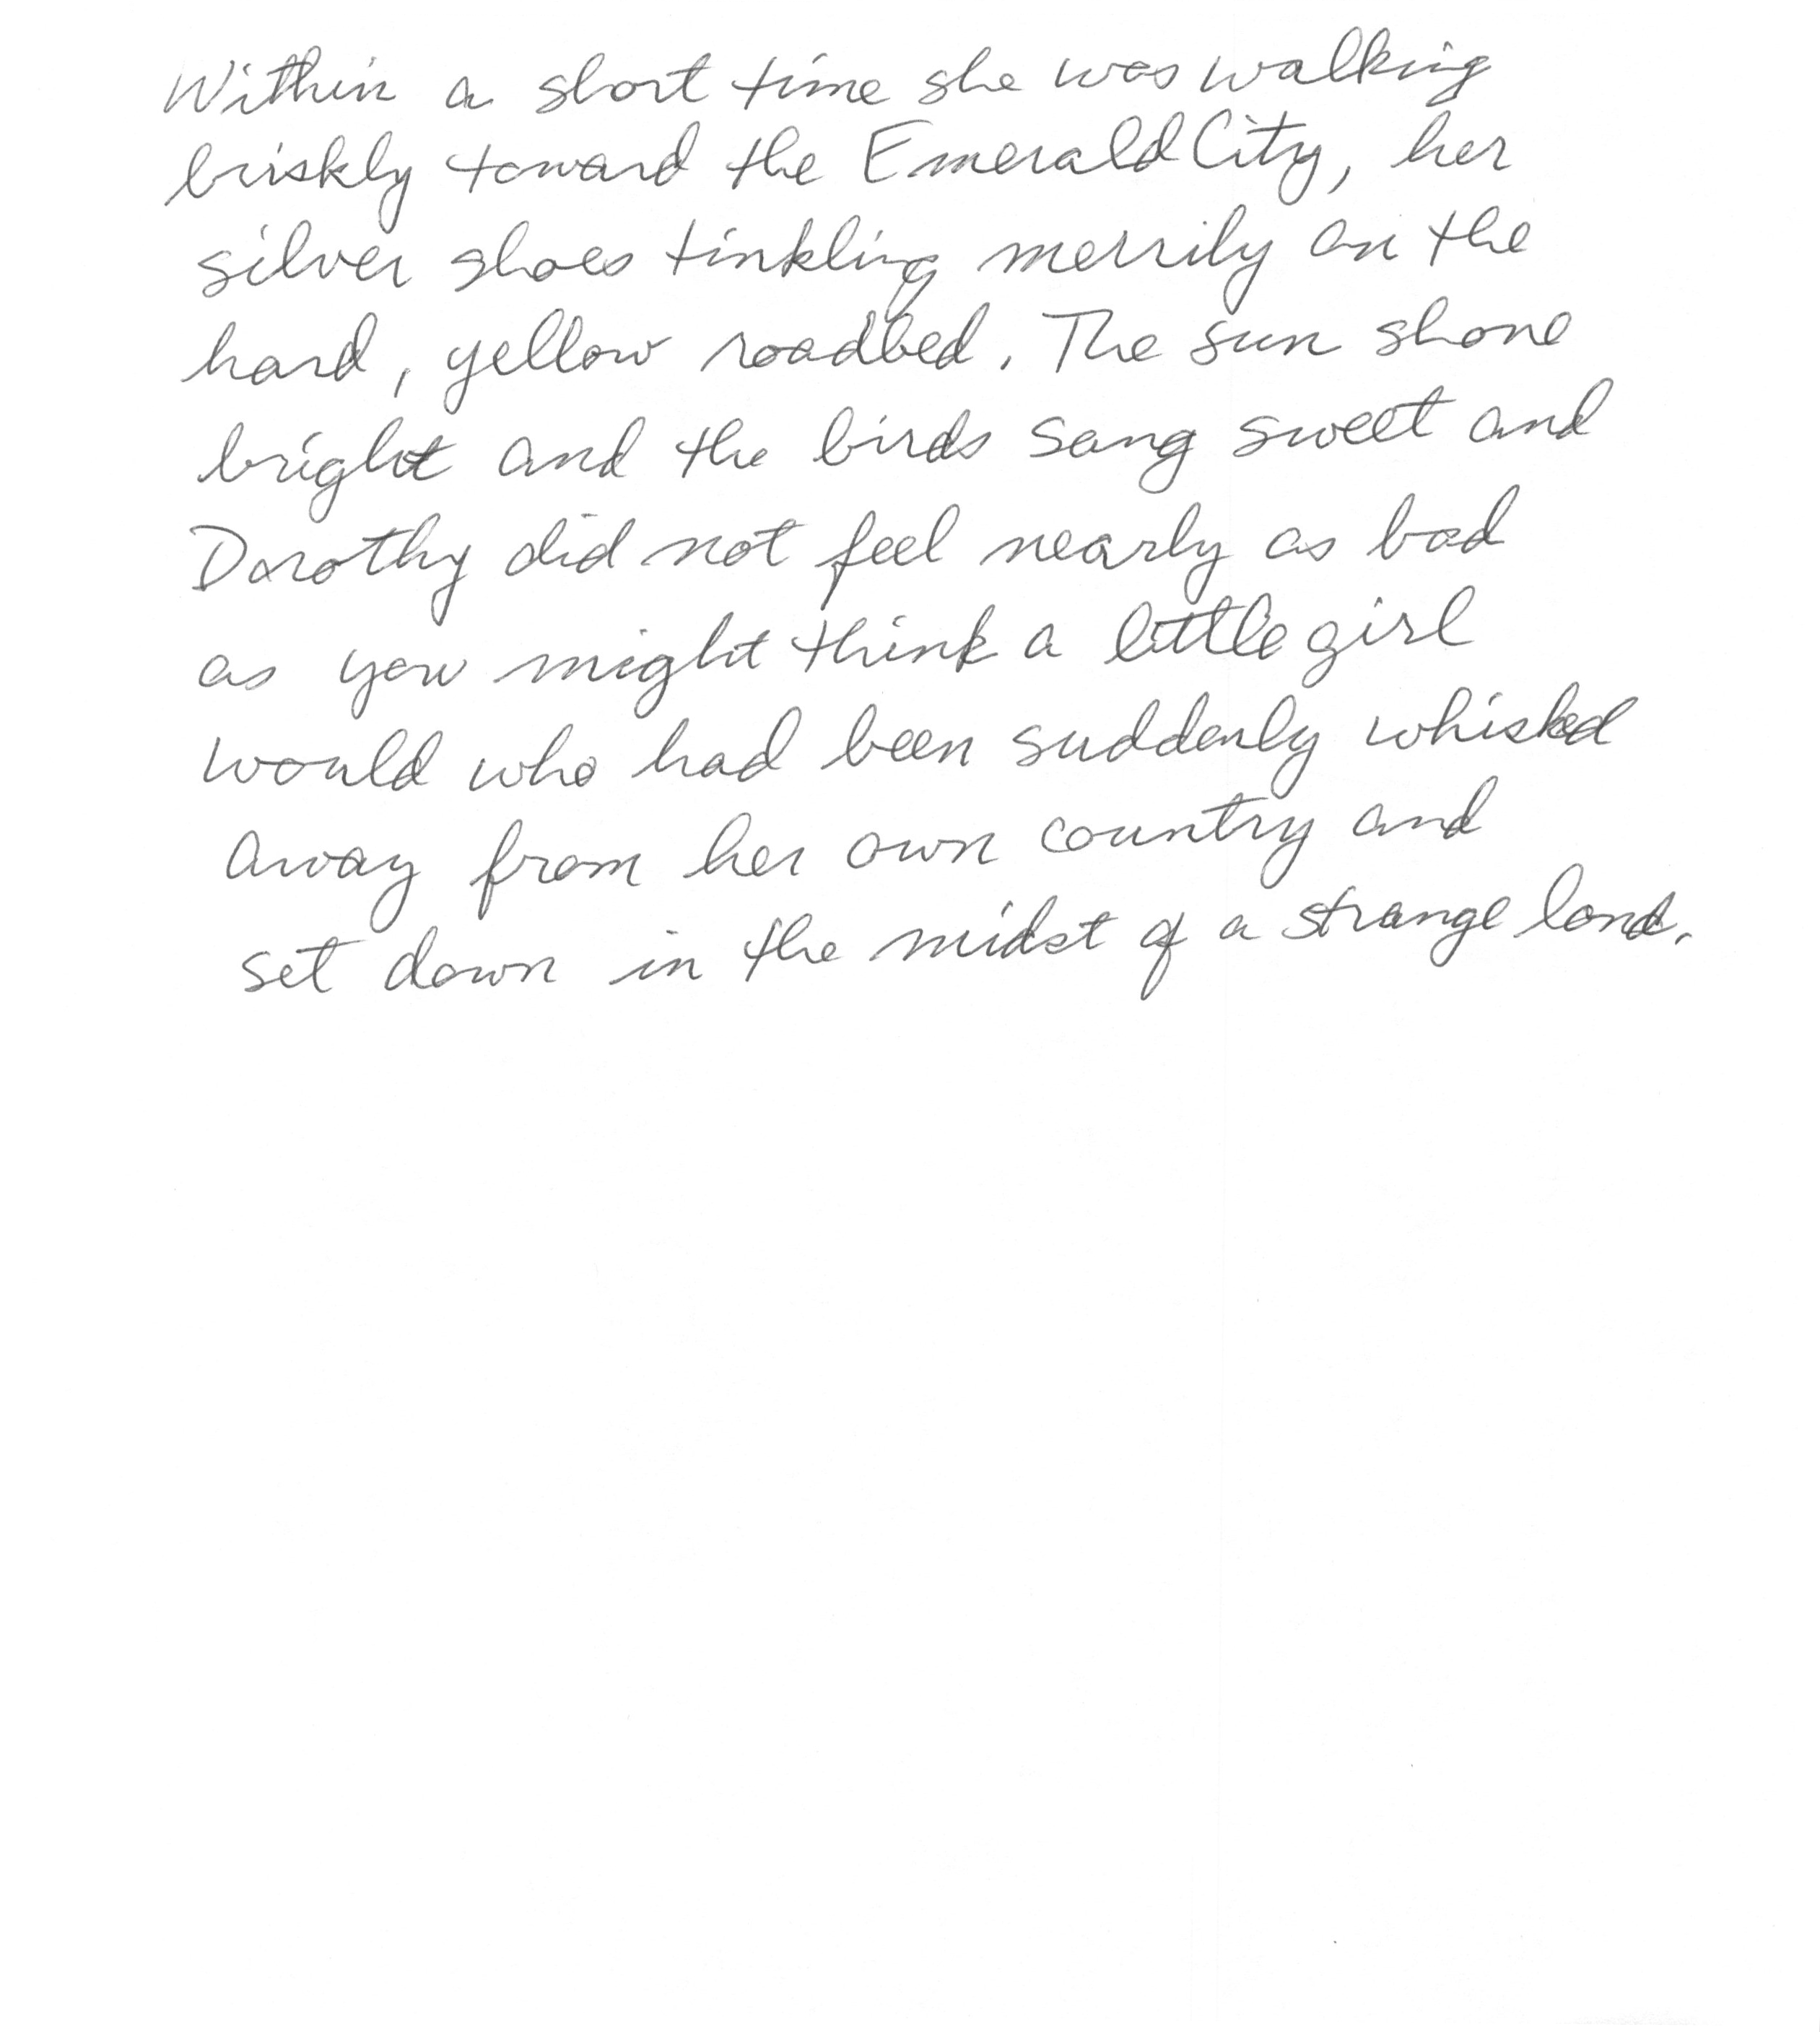 Within a short time she was walking
briskly toward the Emerald City, her
silver shoes tinkling merrily on the
hard, yellow roadbed. The sun shone
bright and the birds sang sweet and
Dorothy did not feel nearly as bad
as you might think a little girl
would who had been suddenly whisked
away from her own country and
set down in the midst of a strange land.